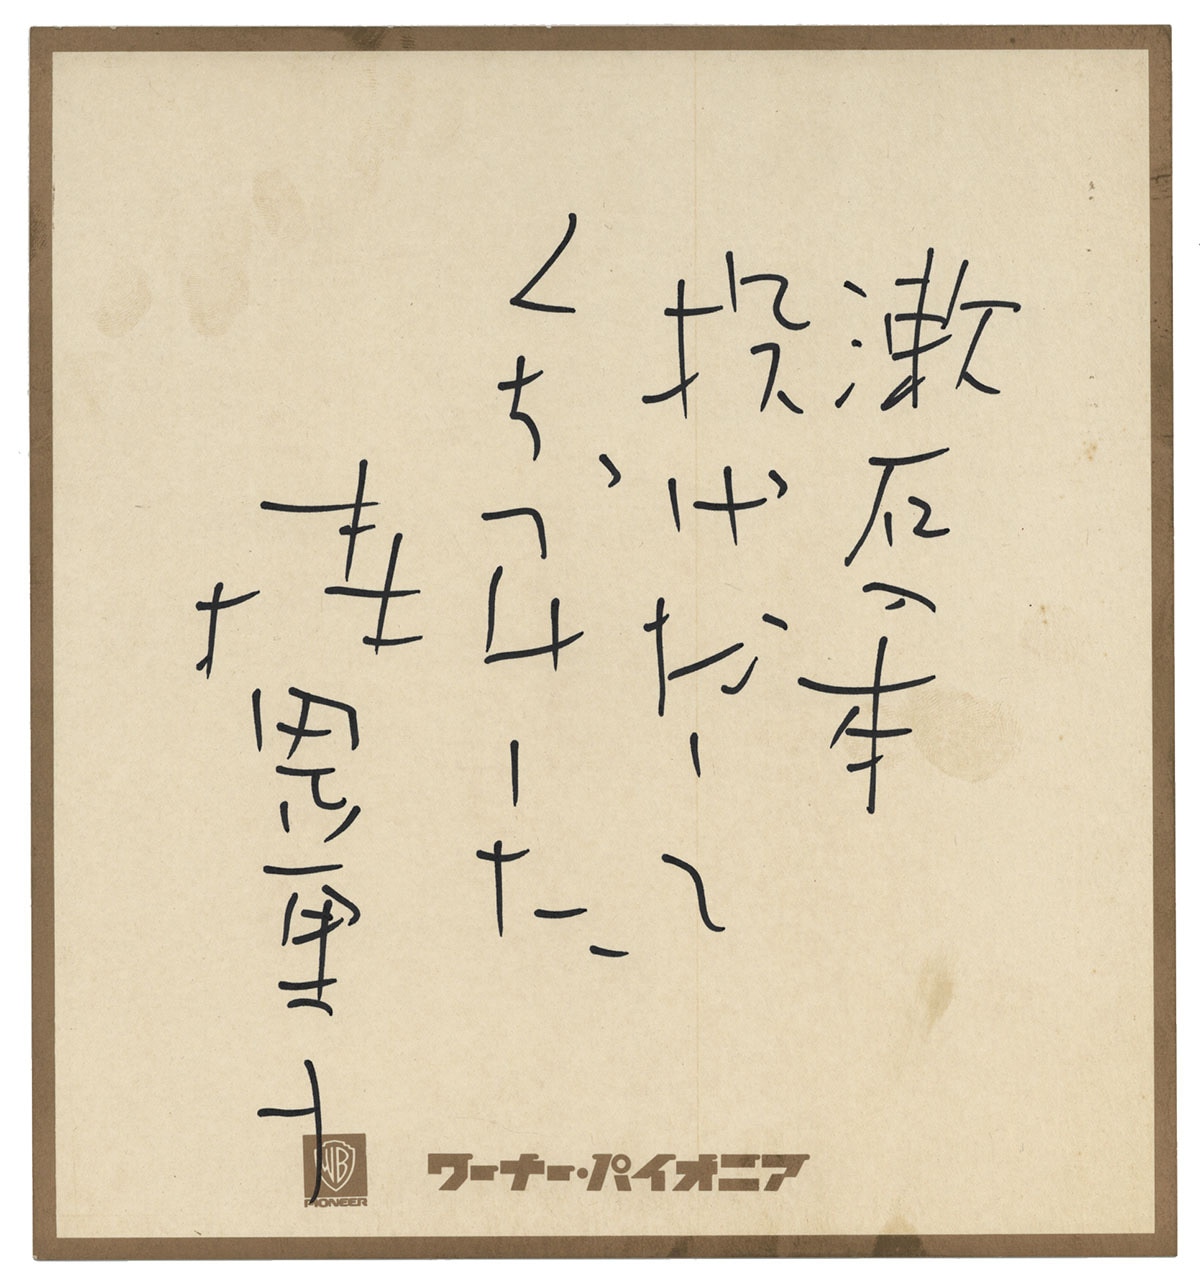 漱石の本
投げだして
くちづけした
WB
PIONEER
ワーナー・パイオニア